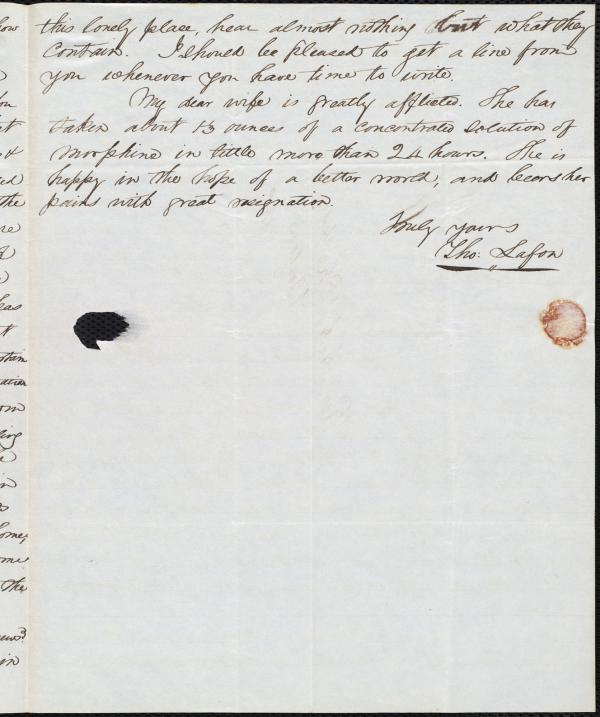 this lonely place, hear almost nothing but what they
contain. I should be pleased to get a line from
you whenever you have time to write.
My dear wife is greatly afflicted. She has
taken about 13 ounces of a concentrated solution of
morphine in little more than 24 hours. She is
happy in the hope of a better world, and bears her
pains with great resignation.
Truly yours
Tho: Lafon